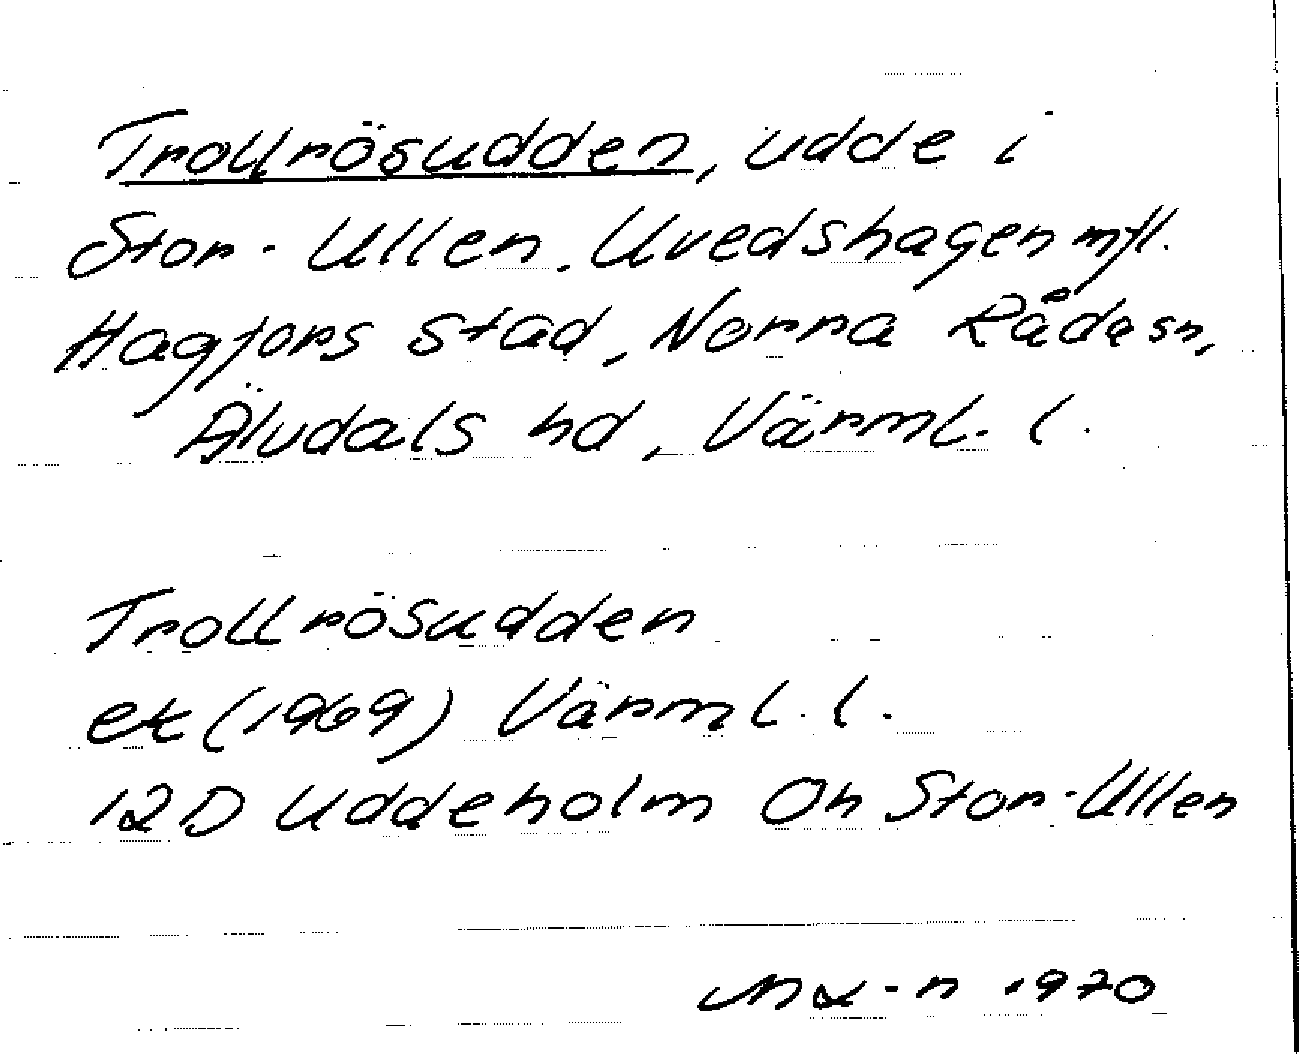 Trollrösudden, udde i
Stor-Ullen. Uvedshagen mfl.
Hagfors stad, Norra Rådasn,
Älvdals hd, Värml. l.
Trollrösudden
ek (1969) Värml. l.
12D Uddeholm Oh Stor-Ullen
1970